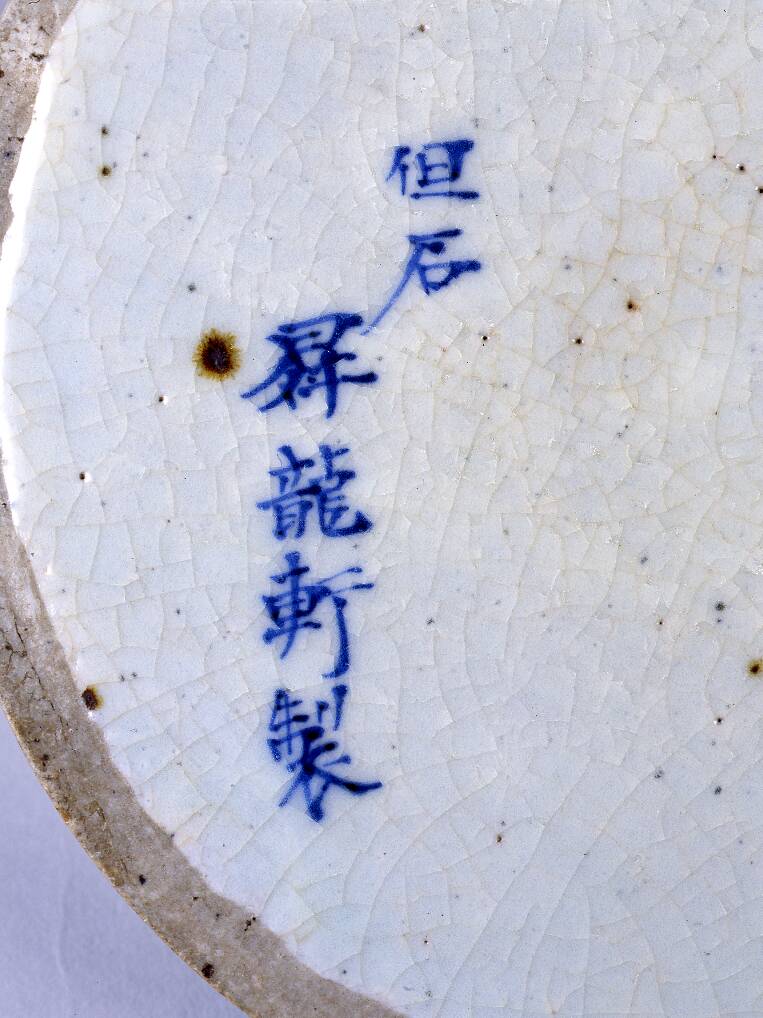 但石
昇龍軒製